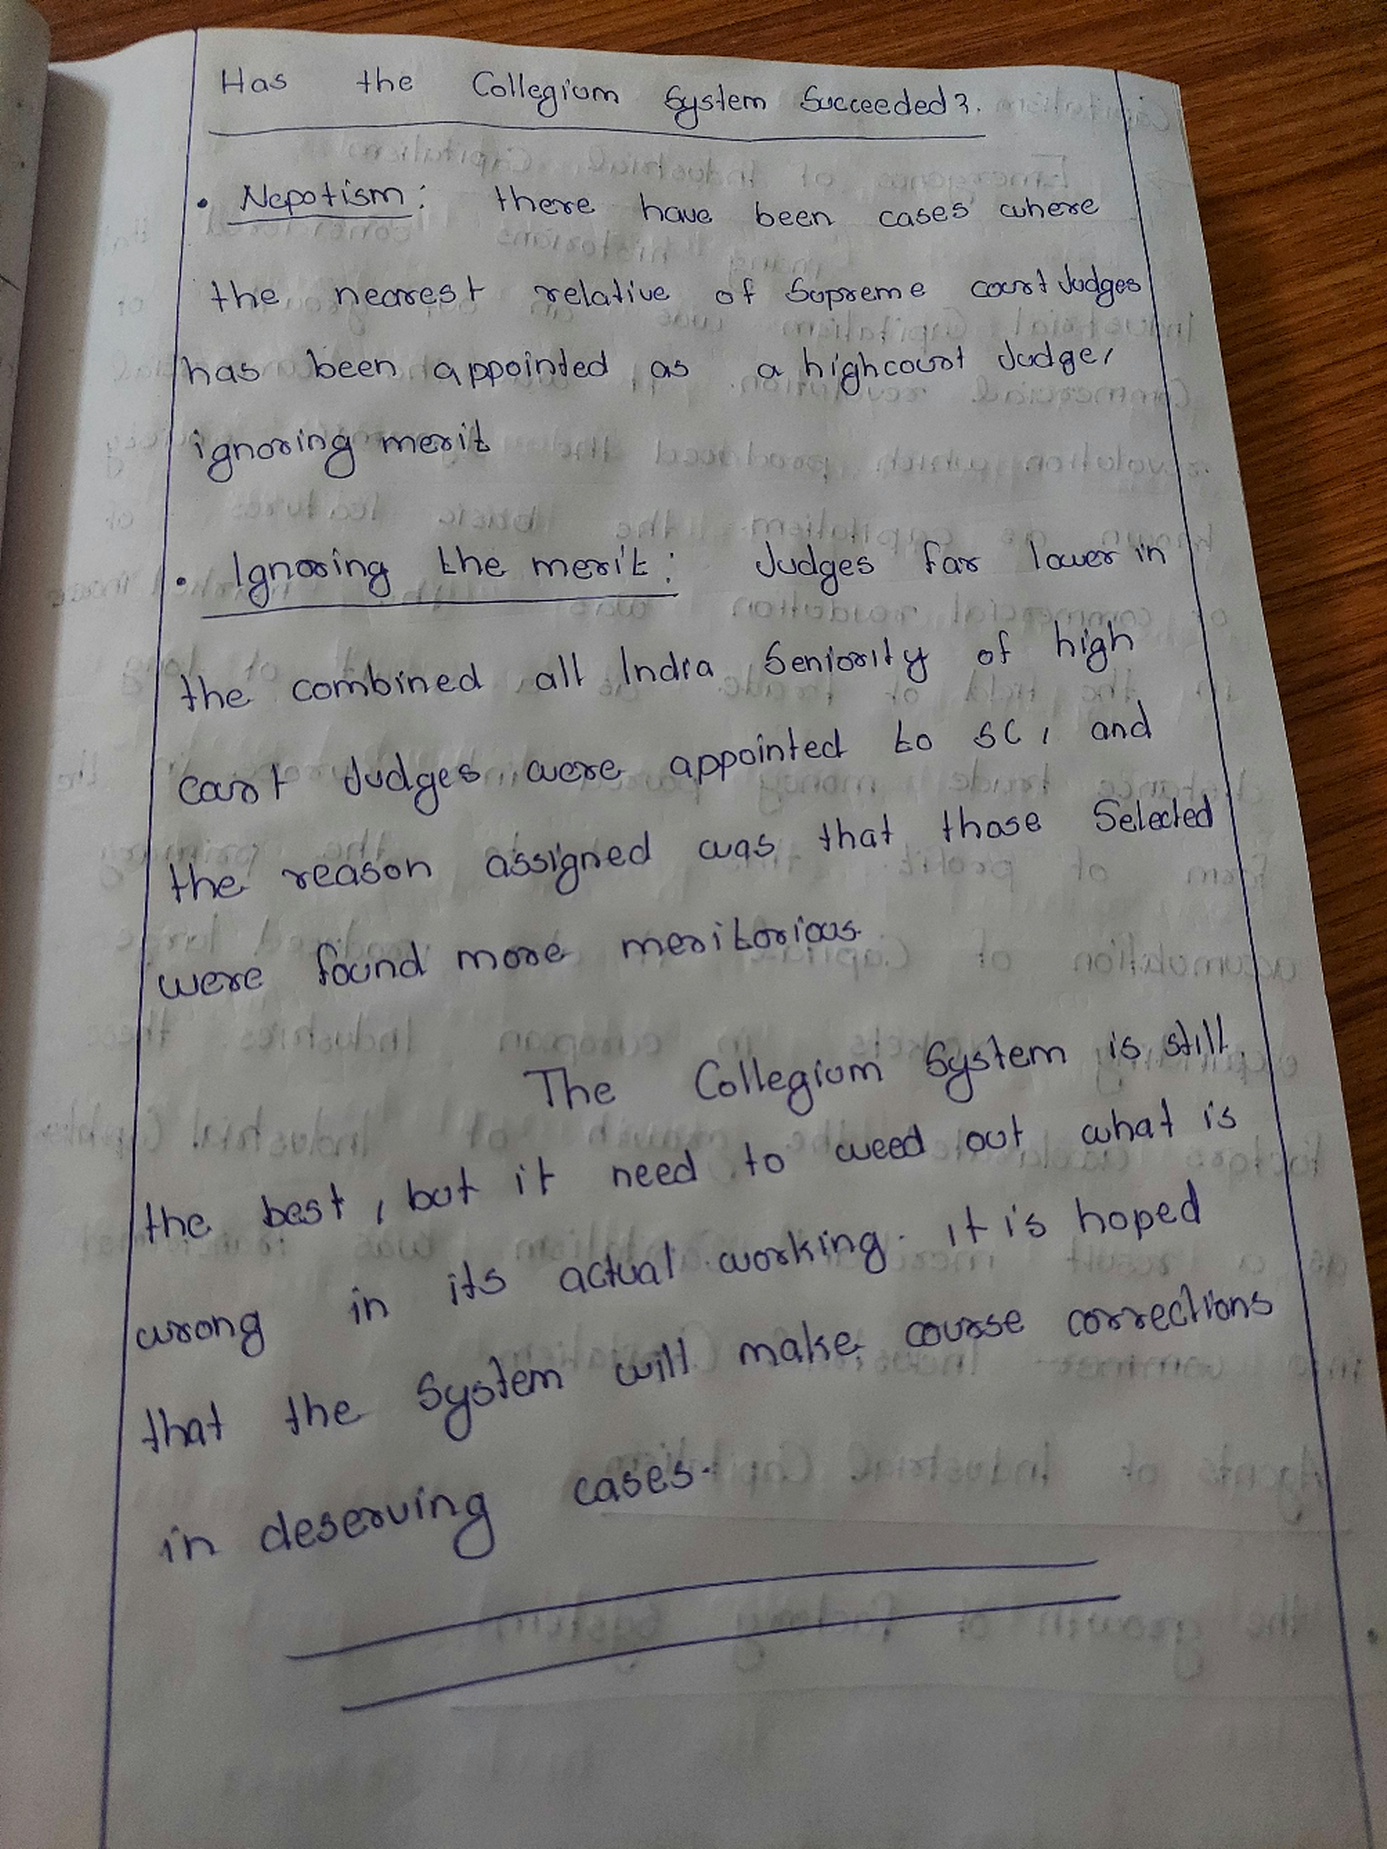 Has the Collegium System Succeeded?.
• Nepotism: there have been cases where
the nearest relative of Supreme court Judges
has been appointed as a highcourt Judge,
ignoring merit
• Ignoring the merit: Judges far lower in
the combined all India Seniority of high
court Judges were appointed to SC, and
the reason assigned was that those Selected
were found more meritorious.
The Collegium System is still
the best, but it need to weed out what is
wrong in its actual working. it is hoped
that the System will make course corrections
in deserving cases.